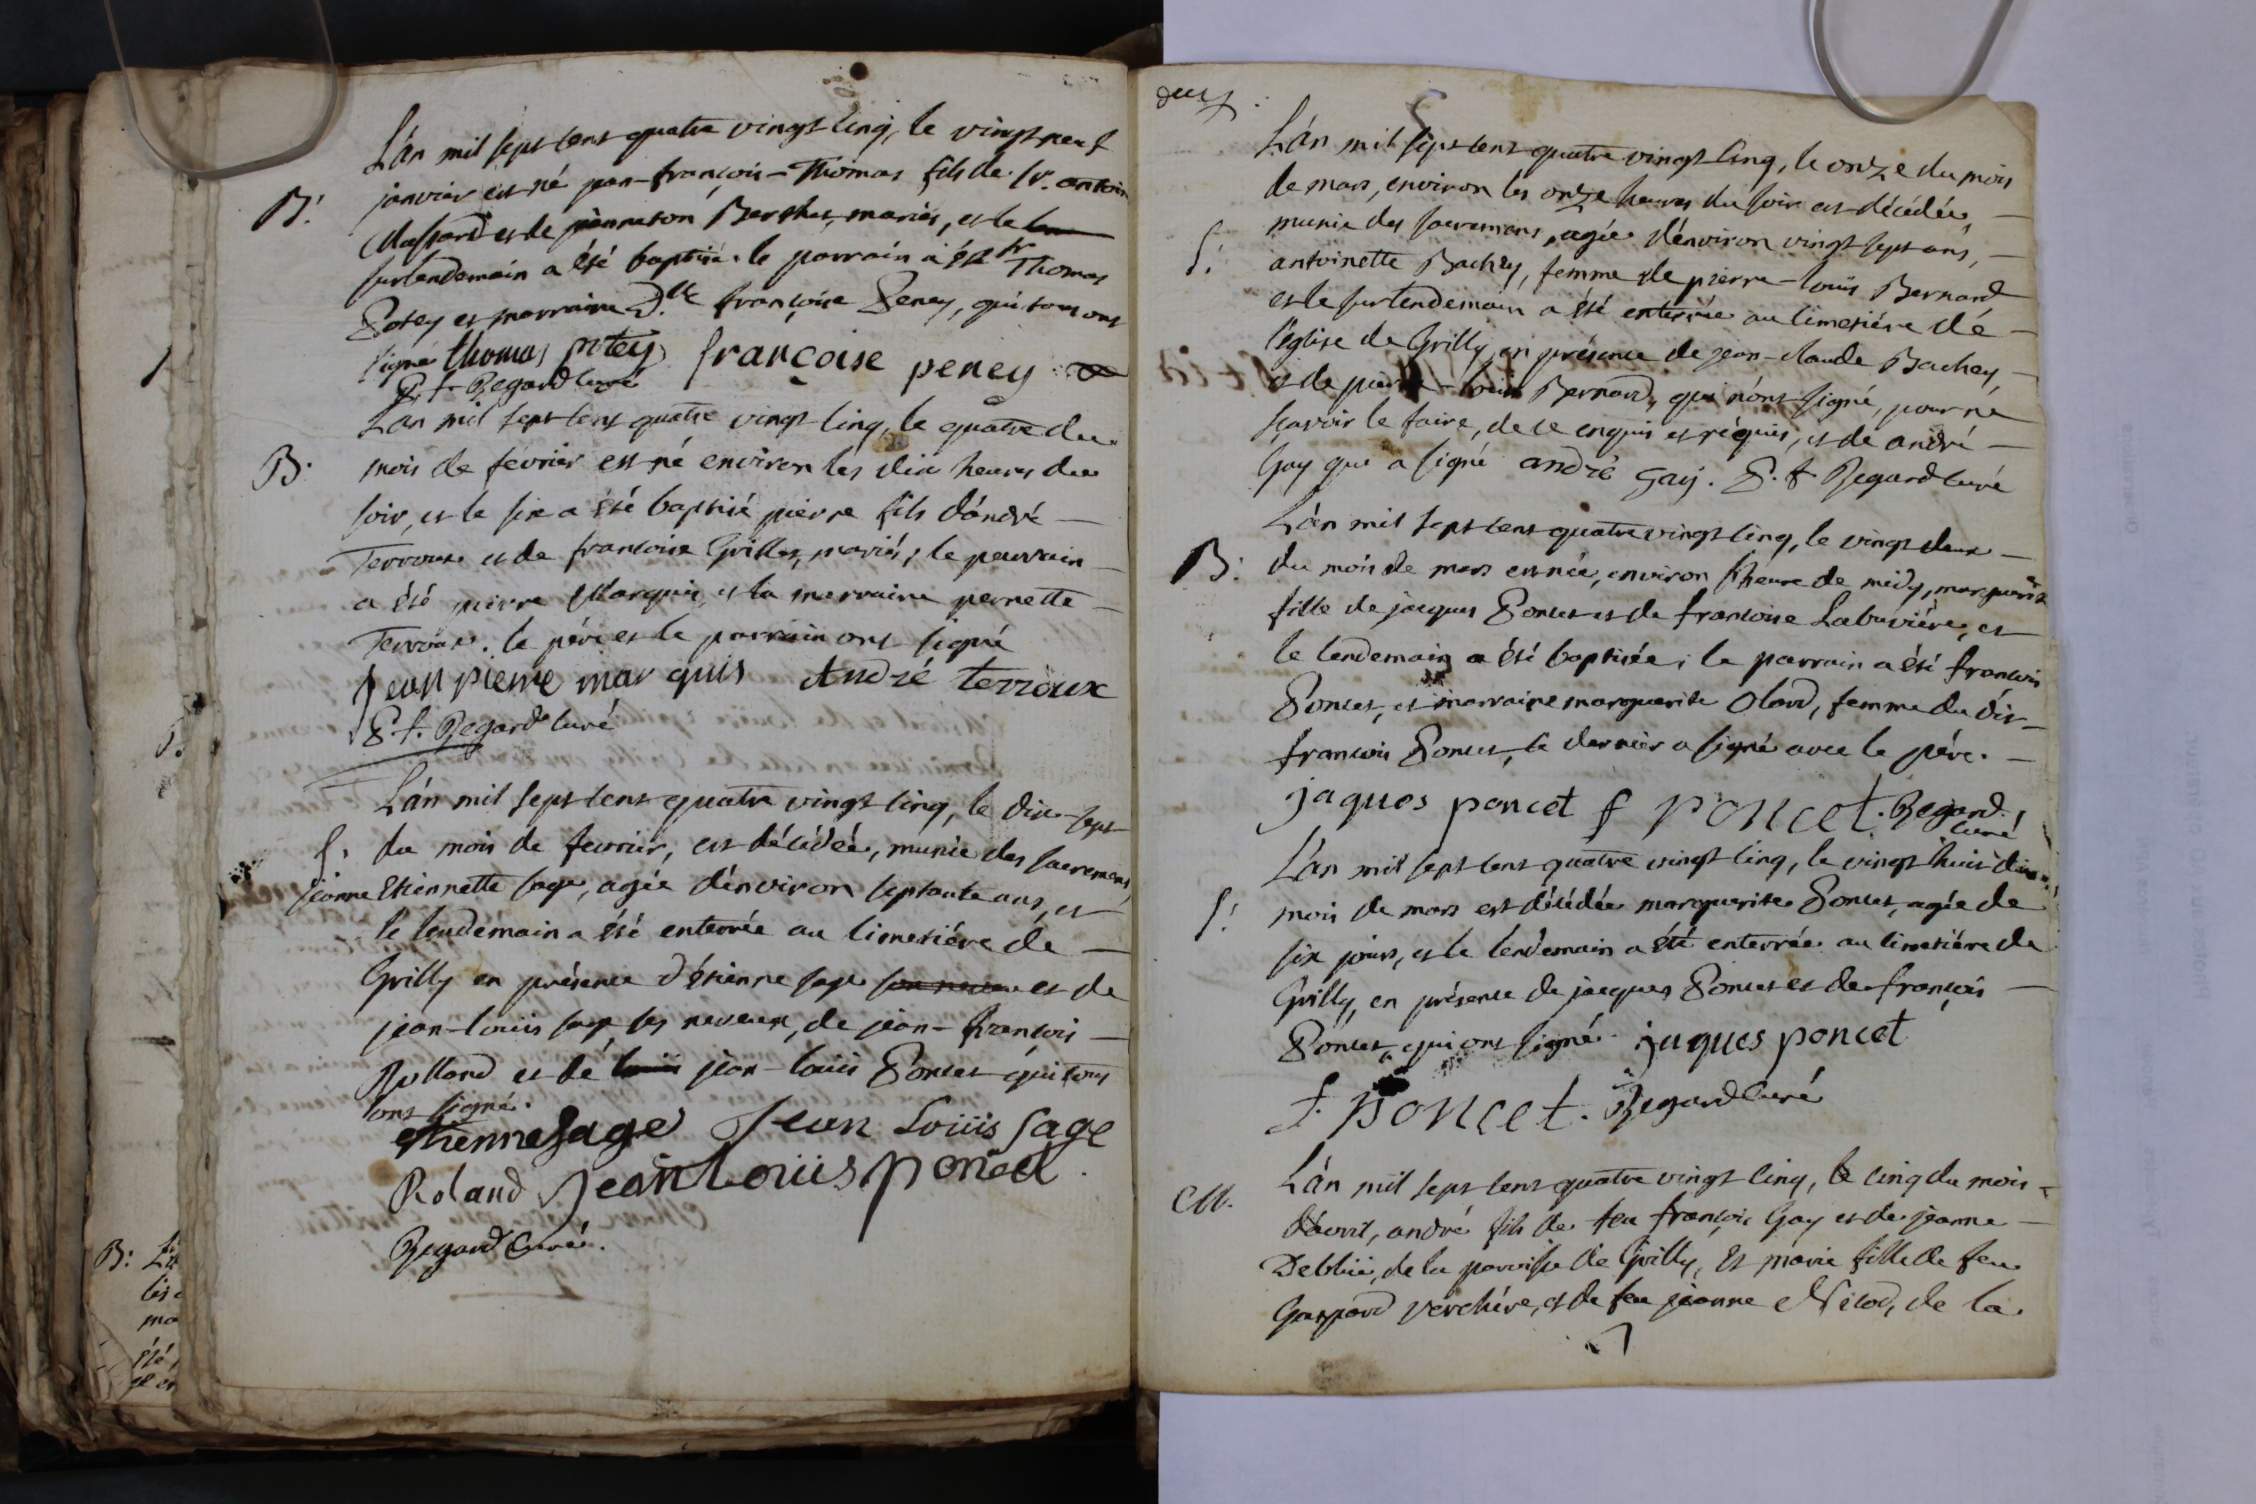 L'án mil sept cent quatre vingt cinq, le vingt neuf
B: janvier est né jean-françois-Thomas fils de Sr. antoine
Massard et de jeanneton Berthet, mariés, et le
surlendemain a été baptisé. le parrain a été Sr Thomas
Potey et marraine D.lle françoise Peney, qui tous ont
signé thomas potey françoise peney
P. f. Regard curé
L'an mil sept cent quatre vingt cinq, le quatre du
B. mois de février est né environ les dix heures du
soir, et le six a été baptisé pierre fils d'andré
Terroux et de francoise Grillet, mariés; le parrain
a été pierre Marquis, et la marraine pernette
Terroux. le pére et le parrain ont signé
Jean pierre marquis André terroux
P. f. Regard curé
L'án mil sept cent quatre vingt cinq, le dix-sept
S. du mois de fevrier, est décédée, munie des sacremens
jeanne Etiennette sage, agée d'environ septante ans, et
le lendemain a été enterrée au cimetiére de
Grilly en présence d'étienne sage son neveu et de
jean-louis sage ses neveux, de jean-françois
Rolland et de louis jean-louis Poncet qui tous
ont signé.
etienne sage Jean Louis sage
Roland Jean Louis poncet
Regard Curé.
deux
L'án mil sept cent quatre vingt cinq, le onze du mois
de mars, environ les onze heures du soir est décédée,
munie des sacremens, agée d'environ vingt sept ans,
S. antoinette Bachey, femme de pierre-louïs Bernard
et le surlendemain a été enterrée au cimetiére de
l'église de Grilly, en présence de jean-claude Bachey,
et de pierre-louis Bernard, qui n'ont signé, pour ne
sçavoir le faire, de ce enquis et réquis, et de andré
Gay qui a signé andré Gay. P. f. Regard curé
L'án mil sept cent quatre vingt cinq, le vingt deux
B: du mois de mars est née, environ l'heure de midy, marguerite
fille de jacques Poncet et de francoise Labuviére, et
le lendemain a été baptisée; le parrain a été francois
Poncet, et marraine marguerite Olard, femme du dit
francois Poncet, le dernier a signé avec le pére.
jaques poncet f poncet. Regard curé
L'án mil sept cent quatre vingt cinq, le vingt huit du
S. mois de mars est décédée marguerite Poncet, agée de
six jours, et le lendemain a été enterrée au cimetiére de
Grilly, en présence de jacques Poncet et de françois
Poncet, qui ont signé. jaques poncet
f. poncet. Regard curé
M. L'án mil sept cent quatre vingt cinq, le cinq du mois
d'avril, andré fils de feu françois Gay et de jeanne
de la paroisse de Grilly, et marie fille de feu
Gaspard verchére, et de feu jeanne Nicod, de la